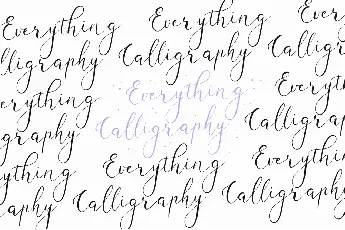 Everything Everything Ever
lligraphy Calligraphy Calligraph
Everything
erything Everyt
Calligraphy
graphy Calligra
Everything Everyth
ything
Calligraphy Calligraph
aphy